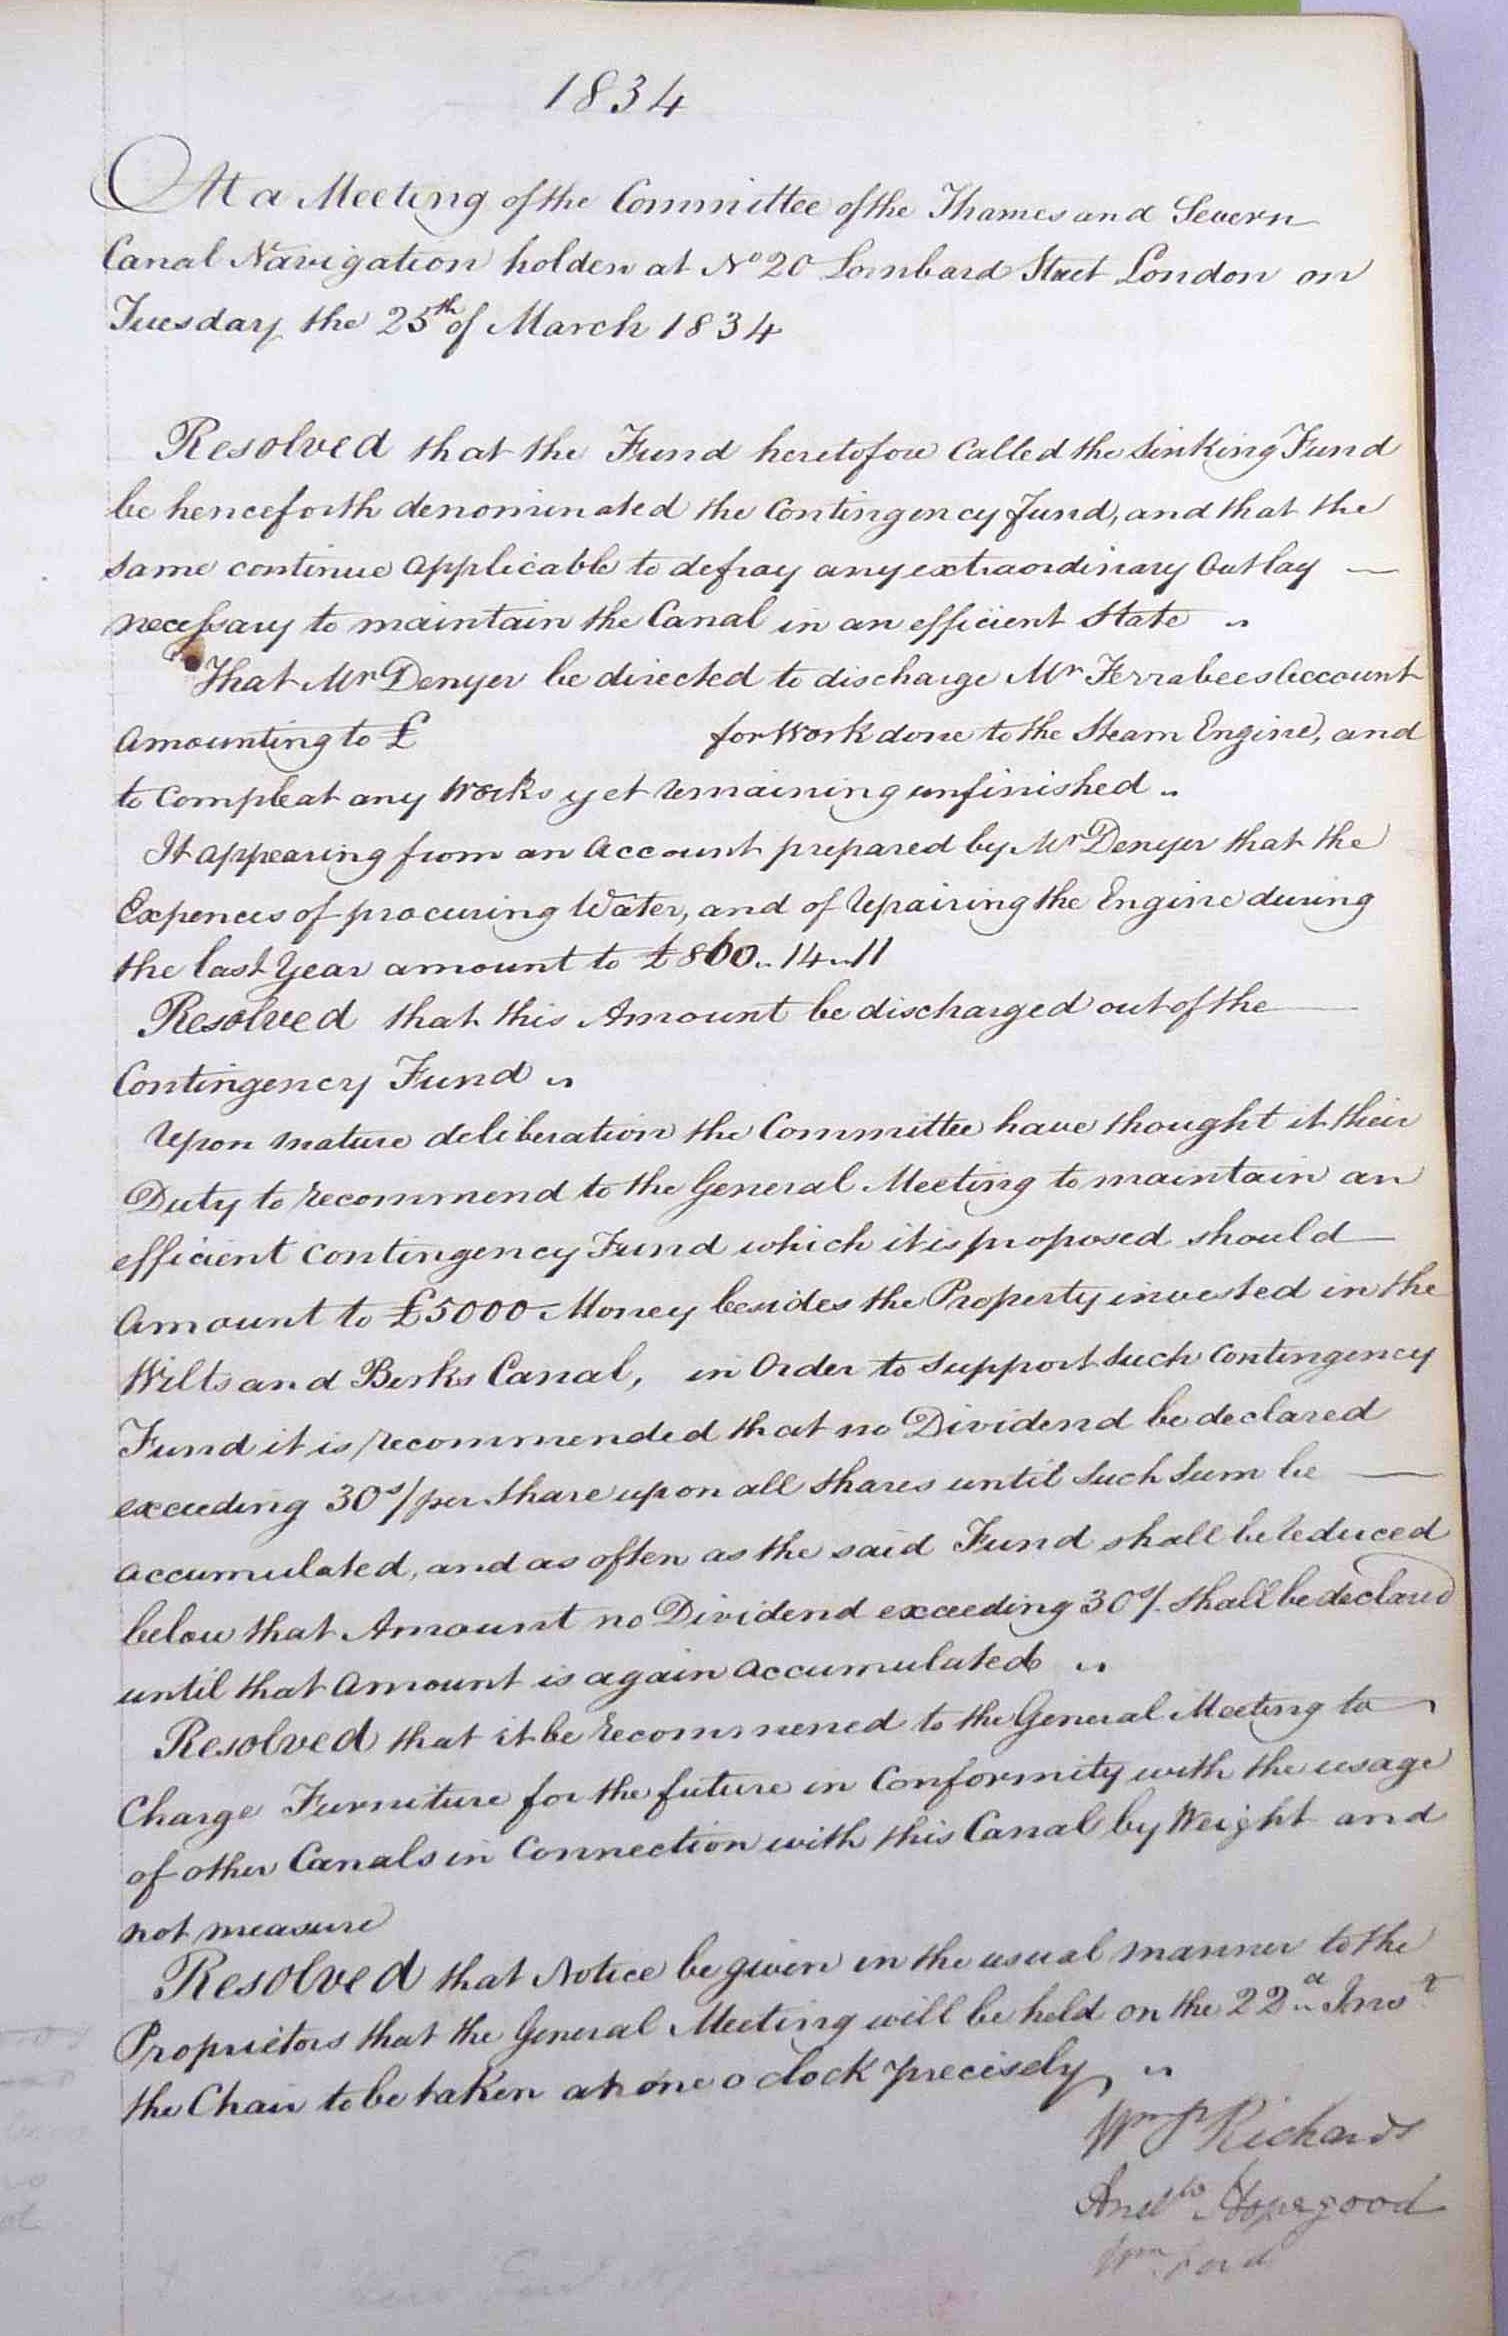 1834
At a Meeting of the Committee of the Thames and Severn
Canal Navigation holden at No 20 Lombard Street London on
Tuesday the 25th of March 1834
Resolved that the Fund heretofore Called the Sinking Fund
be henceforth denominated the Contingency Fund, and that the
same continue applicable to defray any extraordinary Outlay —
necessary to maintain the Canal in an efficient State "
That Mr Denyer be directed to discharge Mr Ferrabees Account
amounting to £ for Work done to the Steam Engine, and
to Compleat any Works yet remaining unfinished "
It appearing from an Account prepared by Mr Denyer that the
Expences of procuring Water, and of repairing the Engine during
the last Year amount to £860 " 14 " 11
Resolved that this Amount be discharged out of the —
Contingency Fund "
Upon mature deliberation the Committee have thought it their
Duty to recommend to the General Meeting to maintain an
efficient Contingency Fund which it is proposed should —
Amount to £5000 Money besides the Property invested in the
Wilts and Berks Canal, in Order to support such Contingency
Fund it is recommended that no Dividend be declared
exceeding 30s/ per Share upon all Shares until such Sum be —
accumulated, and as often as the said Fund shall be reduced
below that Amount no Dividend exceeding 30s/. shall be declared
until that Amount is again accumulated "
Resolved that it be recommened to the General Meeting to
Charge Furniture for the future in Conformity with the usage
of other Canals in Connection with this Canal by Weight and
not measure
Resolved that Notice be given in the usual manner to the
Proprietors that the General Meeting will be held on the 22d Inst
the Chair to be taken at one o clock precisely "
Wm P Richards
Hopegood
Wm Ford